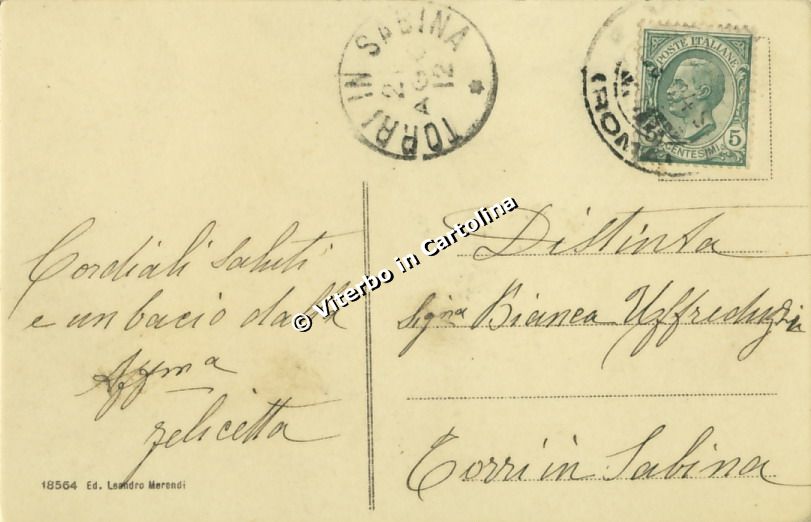 TORRI IN SABINA
21
AGO
12
POSTE ITALIANE
5
CENTESIMI
Cordiali saluti
e un bacio dalla
Affma
Felicetta
18564 Ed. Leandro Merendi
© Viterbo in Cartolina
Distinta
Signa Bianca Uffreduzzi
Torri in Sabina